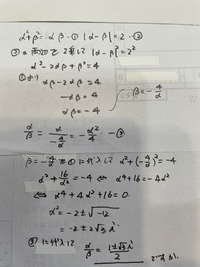 α²+β²=αβ-① |α-β|=2-②
②の両辺を2乗して |α-β|²=2²
α²-2αβ+β²=4
①より
αβ-2αβ=4
-αβ=4
αβ=-4 β=-4/α
α/β = α/(-4/α) = -α²/4 -③
β=-4/α を①に代入して α²+(-4/α)²=-4
α²+16/α²=-4 ⇔ α⁴+16=-4α²
⇔ α⁴+4α²+16=0
α²=-2±√-12
=-2±2√3i
③に代入して α/β = (1±√3i)/2